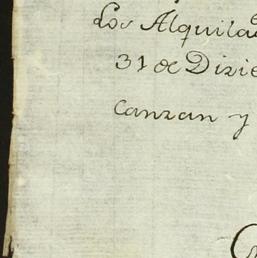 Los Alquila
31 de Dizie
canzan y